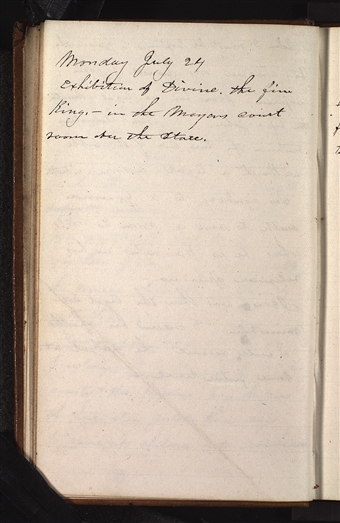 Monday July 24
Exhibition of Divine. the fire
King. – in the Mayors court
room over the State.